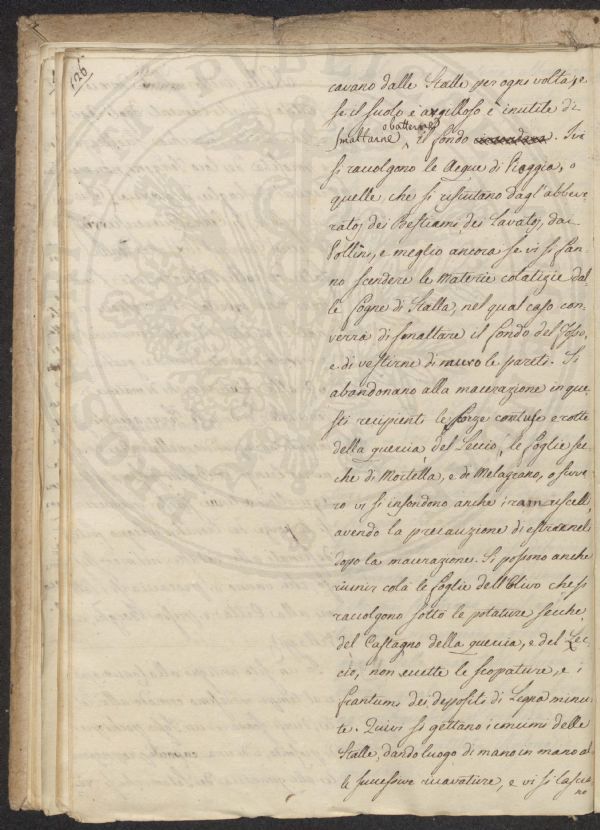 126
cavano dalle Stalle per ogni volta, e
se il suolo è argilloso è inutile di
smaltarne o batterne il fondo. Ivi
si raccolgono le Acque di Pioggia, o
quelle, che si rifiutano dagl'abbeve
ratoj dei Bestiami, dei Lavatoj, dai
Pollini, e meglio ancora se vi si fan
no scendere le materie colatizie dal
le fogne di Stalla, nel qual caso con:
verrà di smaltare il fondo del fosso,
e di vestirne di muro le pareti. Si
abandonano alla macerazione in que
sti recipienti le scorze contuse e rotte
della quercia, del Leccio, le foglie sec
che di Mortella, e di Melagrano, o svve
ro vi si infondono anche i ramuscelli,
avendo la precauzione di estraerneli
dopo la macerazione. Si possono anche
riunir colà le foglie dell'Olivo che si
raccolgono sotto le potature secche,
del Castagno della quercia, e del Lec-
cio, non eccette le scopature, e i
frantumi dei depositi di Legna minu
te. Quivi si gettano i concimi delle
Stalle, dando luogo di mano in mano al
le successive ricavature, e vi si lascia
no